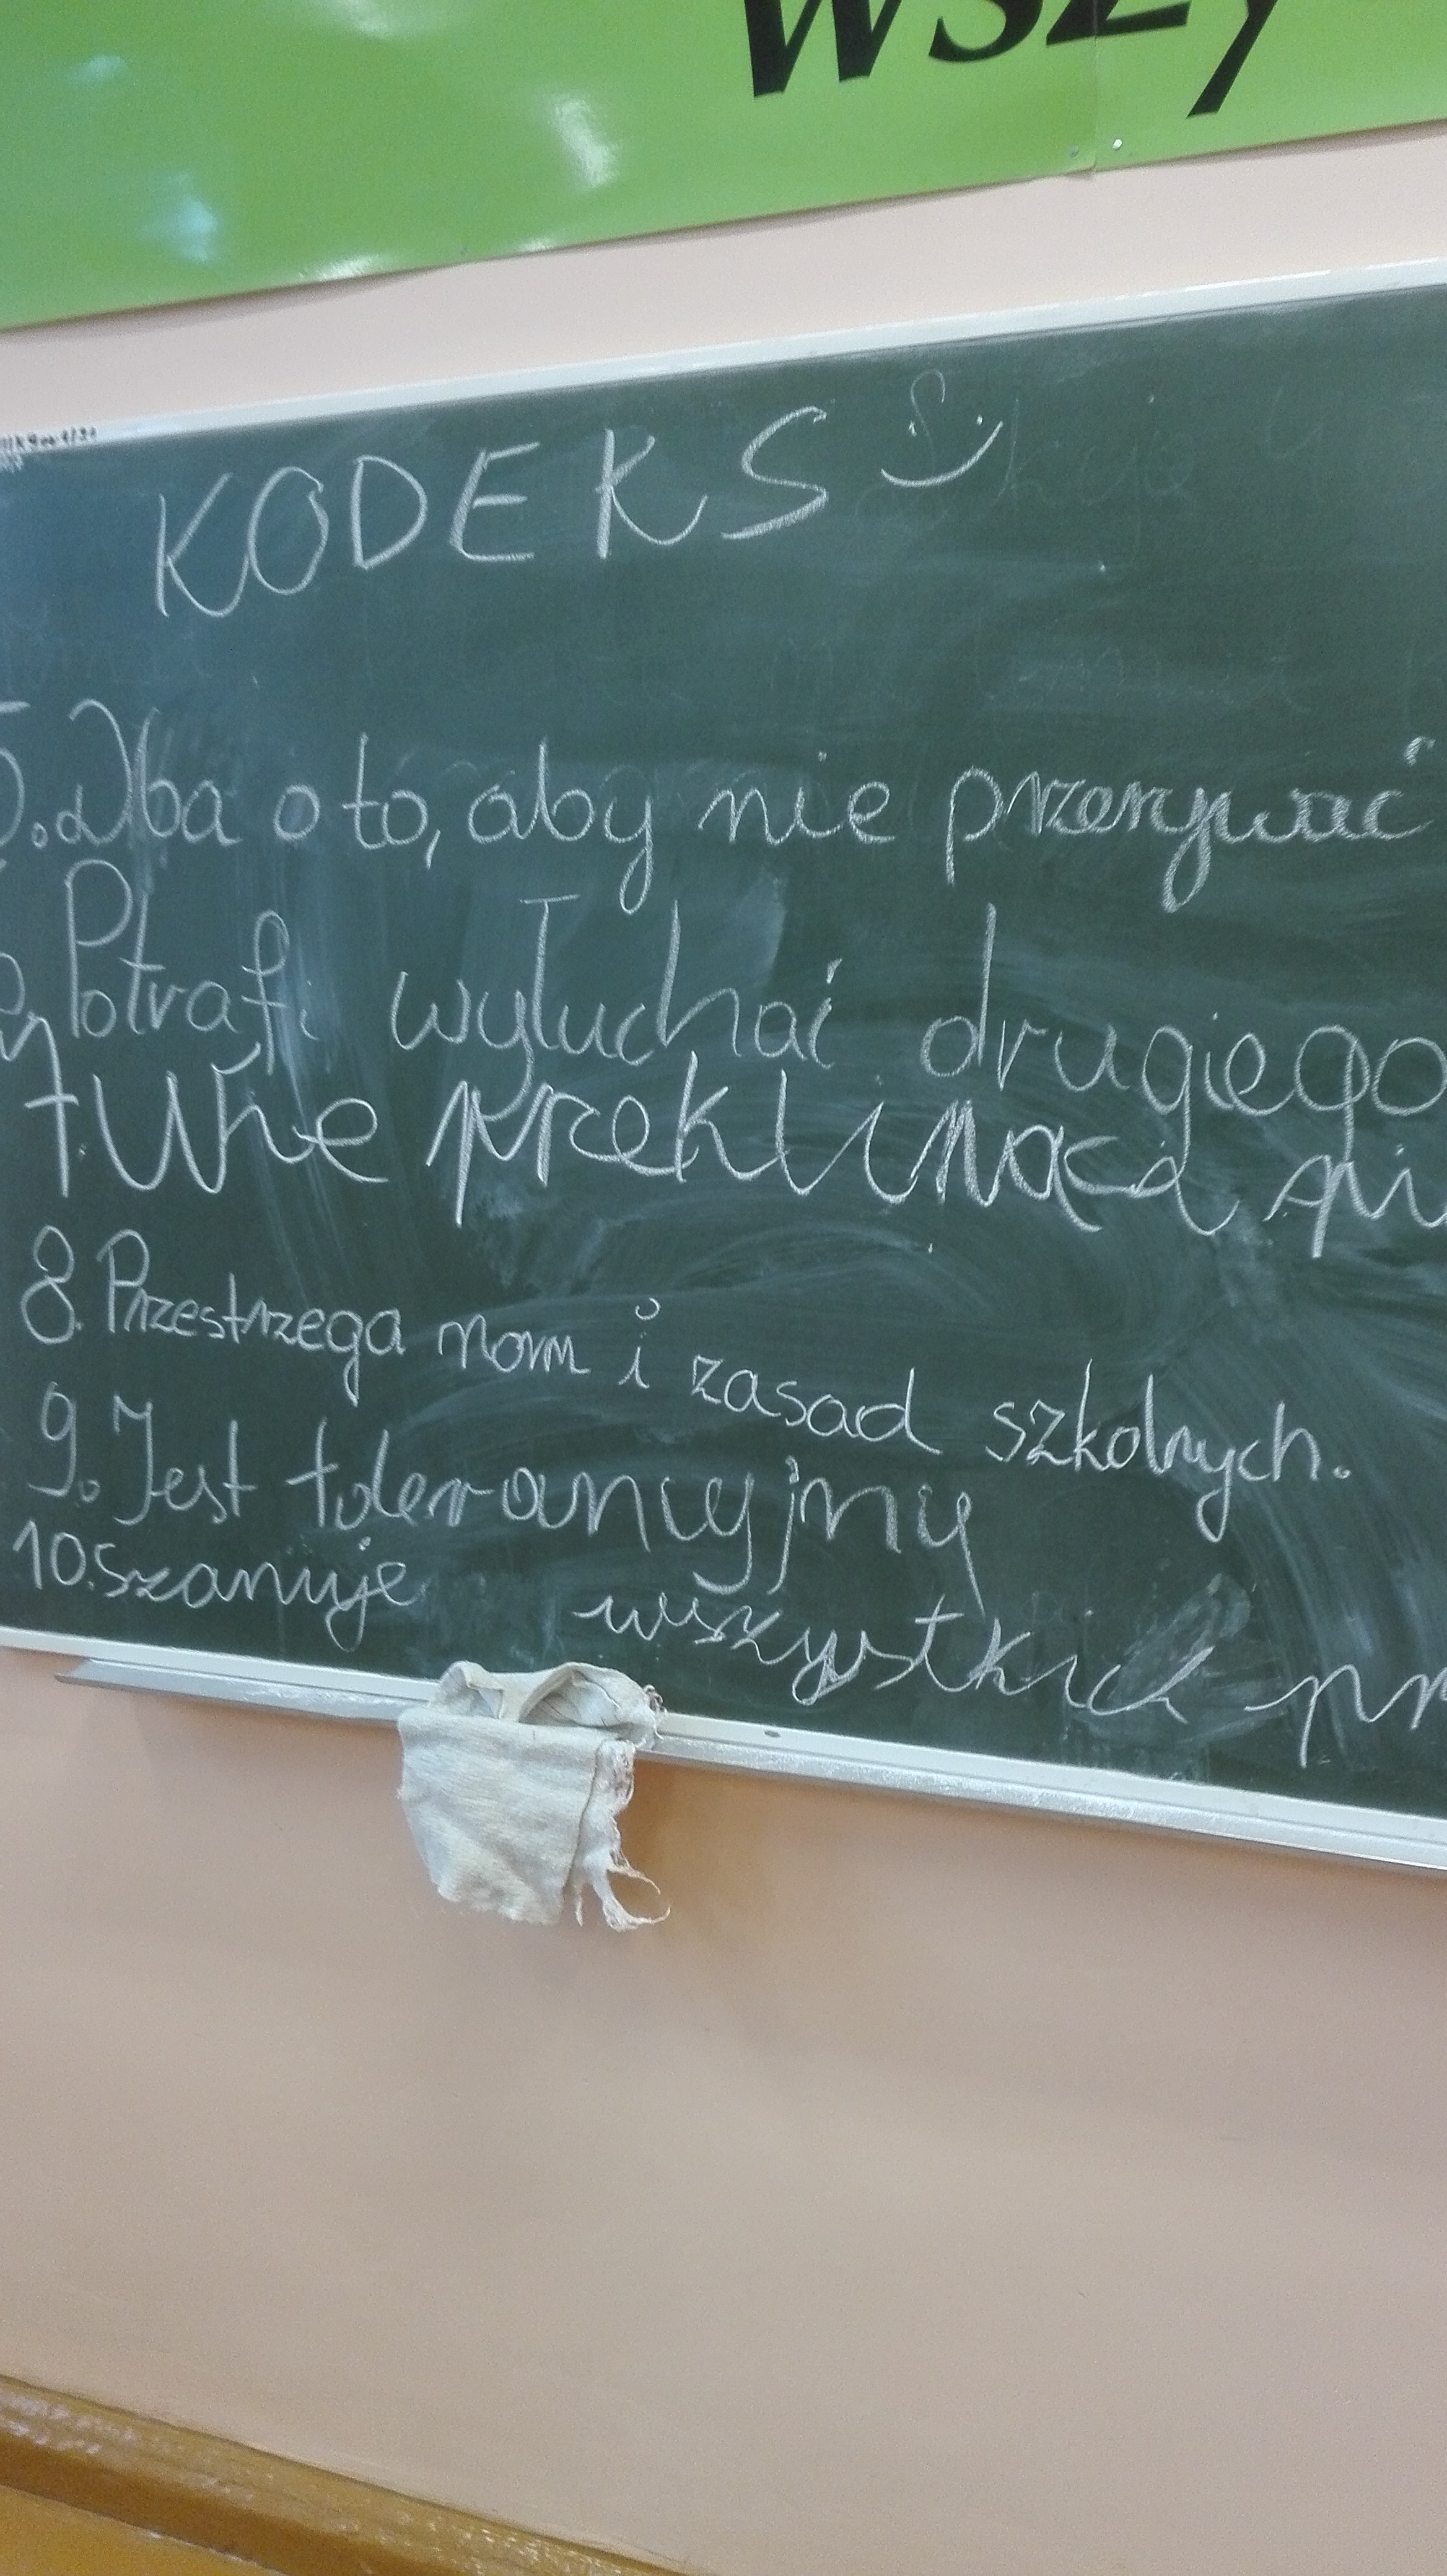 wszy
KODEKS
5. Dba o to, aby nie przerywać
6. Potrafi wyłuchać drugiego
7. Nie
8. Przestrzega norm i zasad szkolnych.
9. Jest tolerancyjny
10. Szanuje wszystkich